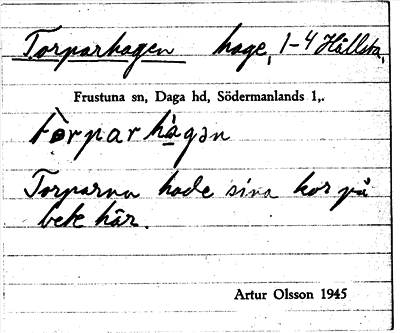 Torparhagen hage, 1-4 Hållsta,
Frustuna sn, Daga hd, Södermanlands l,.
tòrparhàgən
Torparna hade sina kor på
bete här.
Artur Olsson 1945